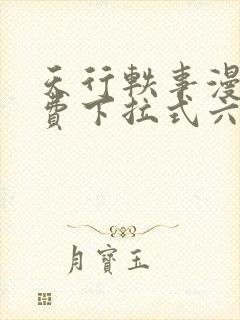 天行軼事漫
費下拉式六
月寶玉